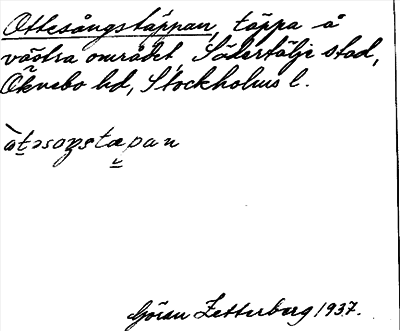 Ottesångstäppan, täppa å
västra området, Södertälje stad,
Öknebo hd, Stockholms l.
Göran Zetterberg 1937.